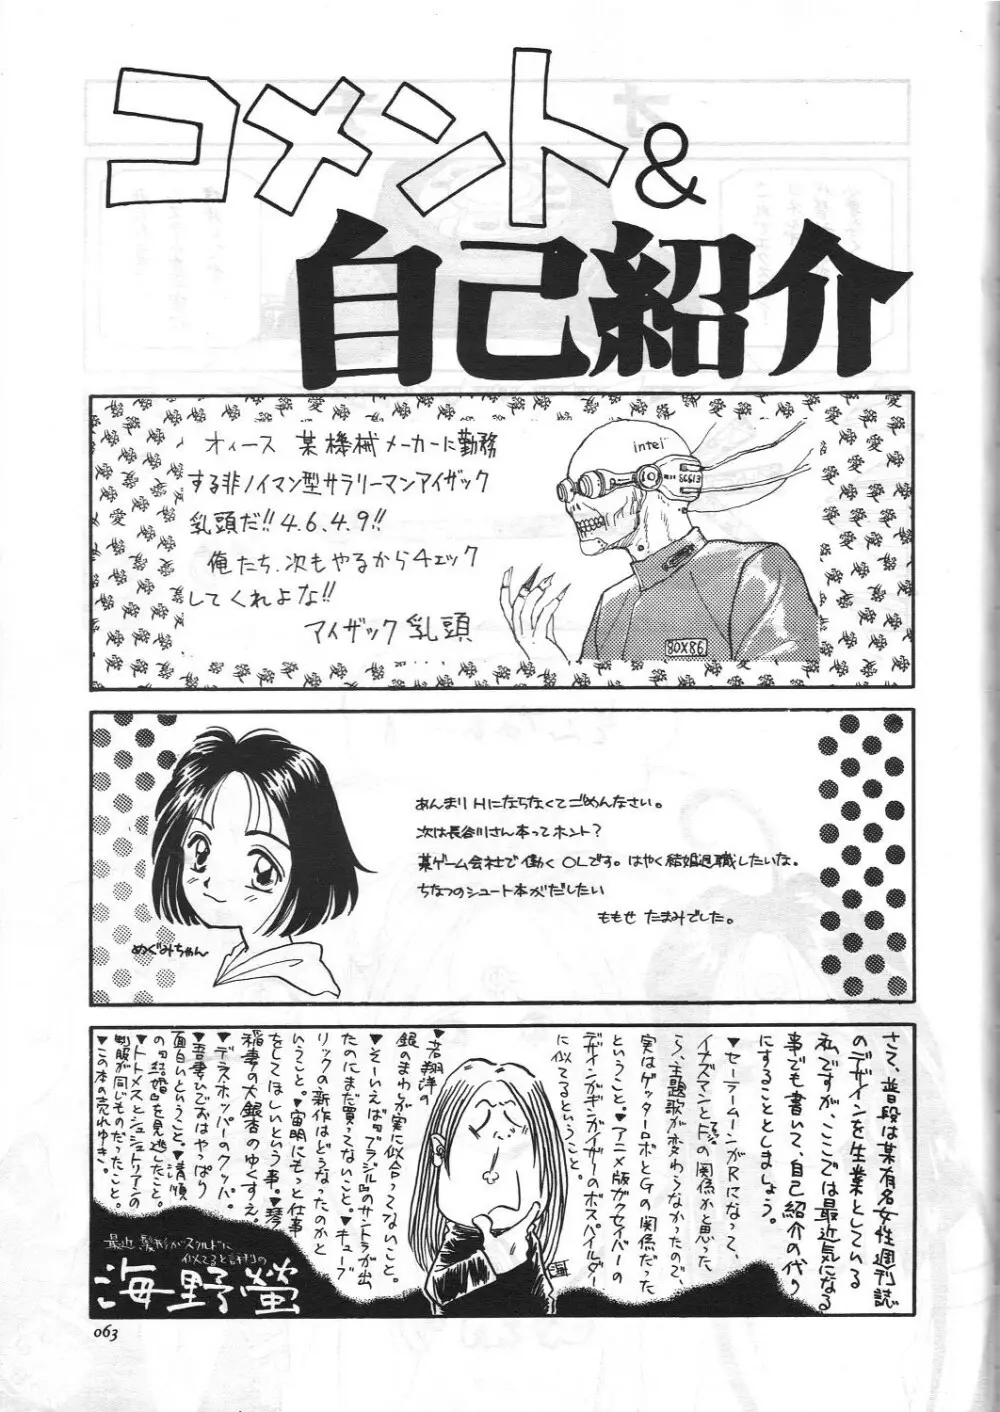 コメント&
自己紹介
オィース 某機械メーカーに勤務
する非ノイマン型サラリーマンアイザック
乳頭だ!! 4.6.4.9!!
俺たち、次もやるからチェック
してくれよな!!
アイザック乳頭
intel
80X86
あんまりHにならなくてごめんなさい。
次は長谷川さん本ってホント?
某ゲーム会社で働くOLです。はやく結婚退職したいな。
ちなつのシュート本がだしたい
ももせ たまみでした。
めぐみちゃん
さて、普段は某有名女性週刊誌
のデザインを生業としている
私ですが、ここでは最近気になる
事でも書いて、自己紹介の代り
にすることとしましょう。
▼セーラームーンがRになって、
イナズマンとFの関係かと思った
ら、主題歌が変わらなかったので、
実はゲッターロボとGの関係だった
ということ。▼アニメ版ガクセイバーの
デザインがギンガイザーのボスペイルダー
に似てるということ。
▼若翔洋の
銀のまわしが実に似合ってないこと。
▼そーいえば「ブラジル」のサントラが出
たのにまだ買ってないこと。▼キューブ
リックの新作はどうなったのかと
いうこと。▼宙明にもっと仕事
をしてほしいという事。▼琴
稲妻の大銀杏のゆくすえ。
▼デラ・ホッパーのクッパ。
▼吾妻ひでおはやっぱり
面白いということ。▼
の「結婚」を見逃したこと。
▼トトメスとシュシュトリアンの
制服が同じものだったこと。
▼この本の売れゆき。
最近、髪形がスクルドに
似てると評判の
海野螢
063